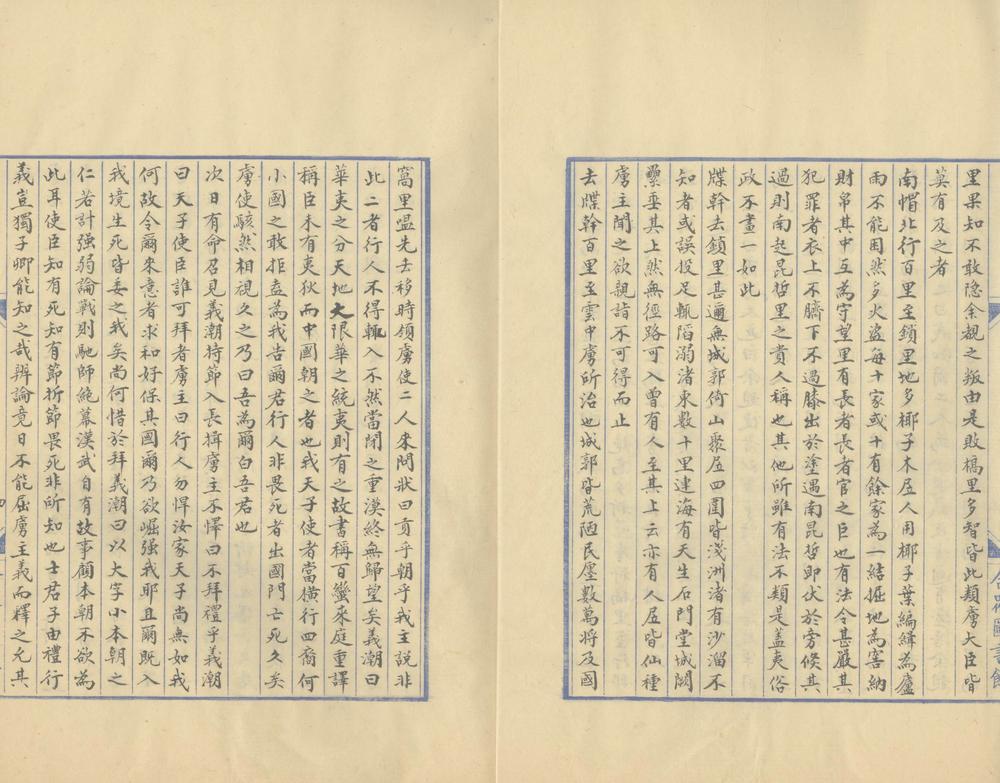 里果知不敢隐余覩之叛由是敗楊里多智皆此類虜大臣皆
莫有及之者
南帽北行百里至鎖里地多椰子木居人用椰子葉編緝為廬
雨不能困然多火盜每十家或十有餘家為一結掘地為窖納
財帛其中互為守望里有長者長者官之臣也有法令甚嚴其
犯罪者衣上不臍下不過膝出於塗遇南昆哲即伏於旁候其
過則南起昆哲里之貴人稱也其他所雖有法不類是蓋夷俗
政不畫一如此
牒幹去鎖里甚邇無城郭倚山聚居四圍皆淺洲渚有沙溜不
知者或誤投足輒陷溺渚東數十里連海有天生石門堂城闕
壘垂其上然無徑路可入曾有人至其上云亦有人居皆仙種
虜主聞之欲親詣不可得而止
去牒幹百里至雲中虜所治也城郭皆荒陋民廛數萬將及國
窩里嗢先去移時領虜使二人來問狀曰貢乎朝乎我主說非
此二者行人不得輒入不然當閉之重漠終無歸望矣義潮曰
華夷之分天地大限華之統夷則有之故書稱百蠻來庭重譯
稱臣未有夷狄而中國朝之者也我天子使者當横行四裔何
小國之敢拒壺為我告爾君行人非畏死者出國門亡死久矣
虜使駭然相視久之乃曰吾為爾白吾君也
次日有命召見義潮持節入長揖虜主不懌曰不拜禮乎義潮
曰天子使臣誰可拜者虜主曰行人勿悍汝家天子尚無如我
何故令爾來意者求和好保其國爾乃欲崛强我耶且爾既入
我境生死皆委之我矣尚何惜於拜義潮曰以大字小本朝之
仁若計强弱論戰則馳師絶幕漢武自有故事顧本朝不欲為
此耳使臣知有死知有節折節畏死非所知也士君子由禮行
義豈獨子卿能知之哉辨論竟日不能屈虜主義而釋之允其